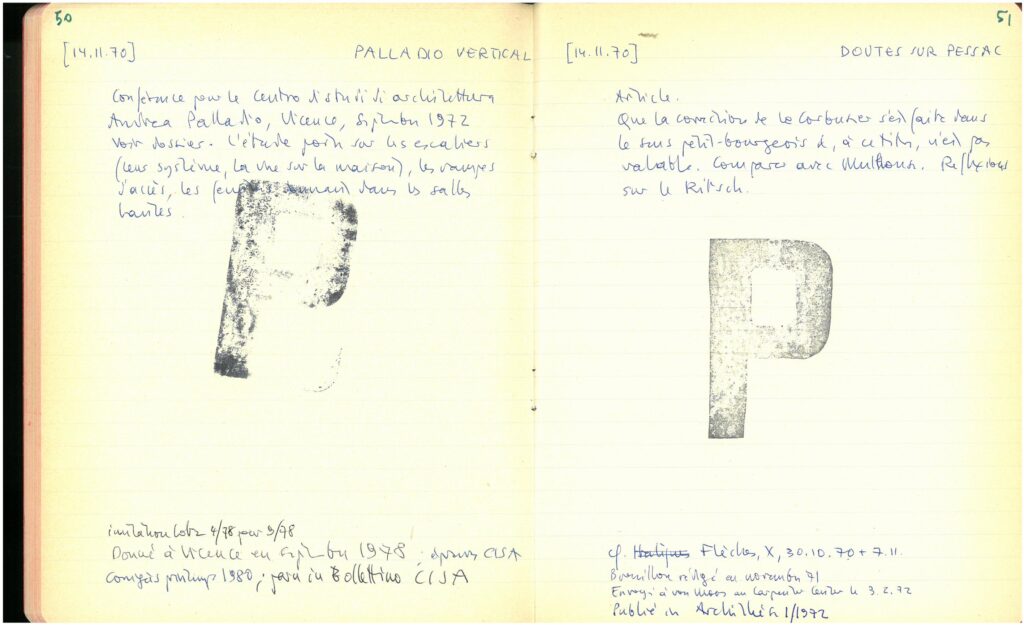 50
[14.11.70] PALLADIO VERTICAL
Conférence pour le Centro di studi di architettura
Andrea Palladio, Vicence, Septembre 1972
Voir dossier. L'étude porte sur les escaliers
(leur système, la vue sur la maison), les rampes
d'accès, les donnant dans les salles
hautes.
P
invitation 4/78 pour 9/78
Donné à Vicence en Septembre 1978. épreuves CISA
corrigées printemps 1980; paru in Bollettino CISA
51
[14.11.70] DOUTES SUR PESSAC
Article.
Que la correction de Le Corbusier s'est faite dans
le sens petit-bourgeois et, à ce titre, n'est pas
valable. Comparer avec Mulhouse. Réflexions
sur le Kitsch.
P
cf. Flèches, X, 30.10.70 + 7.11.
Brouillon rédigé en novembre 71
Envoyé à von Moos au Carpenter Center le 3.2.72
Publié in Archithèse 1/1972